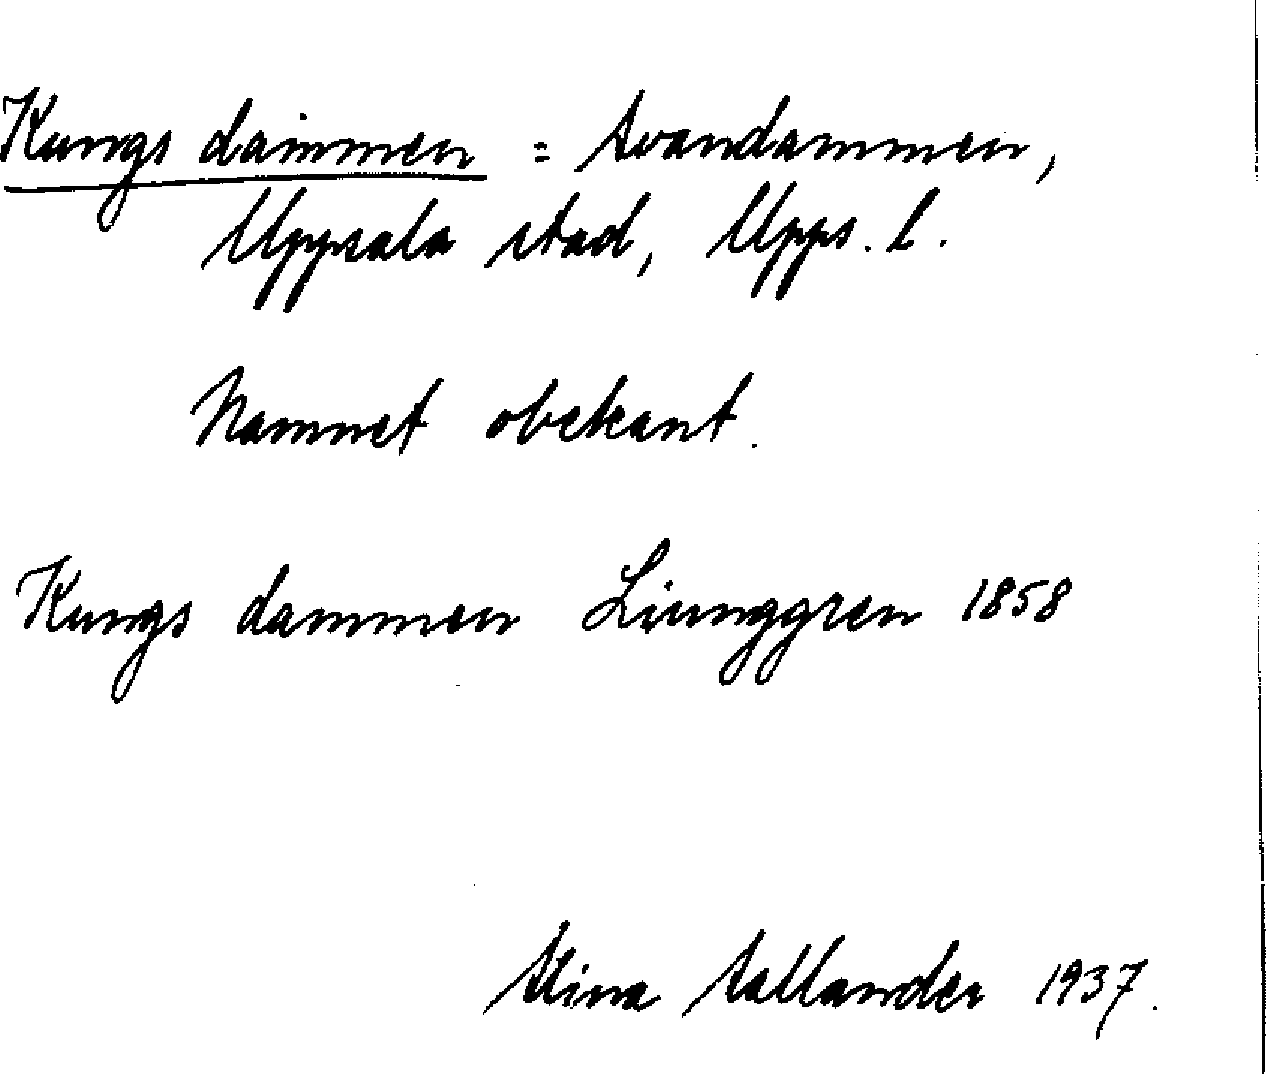 Kungs dammen = Svandammen,
Uppsala stad, Upps. l.
Namnet obekant.
Kungs dammen Liunggren 1858
Stina Sallander 1937.